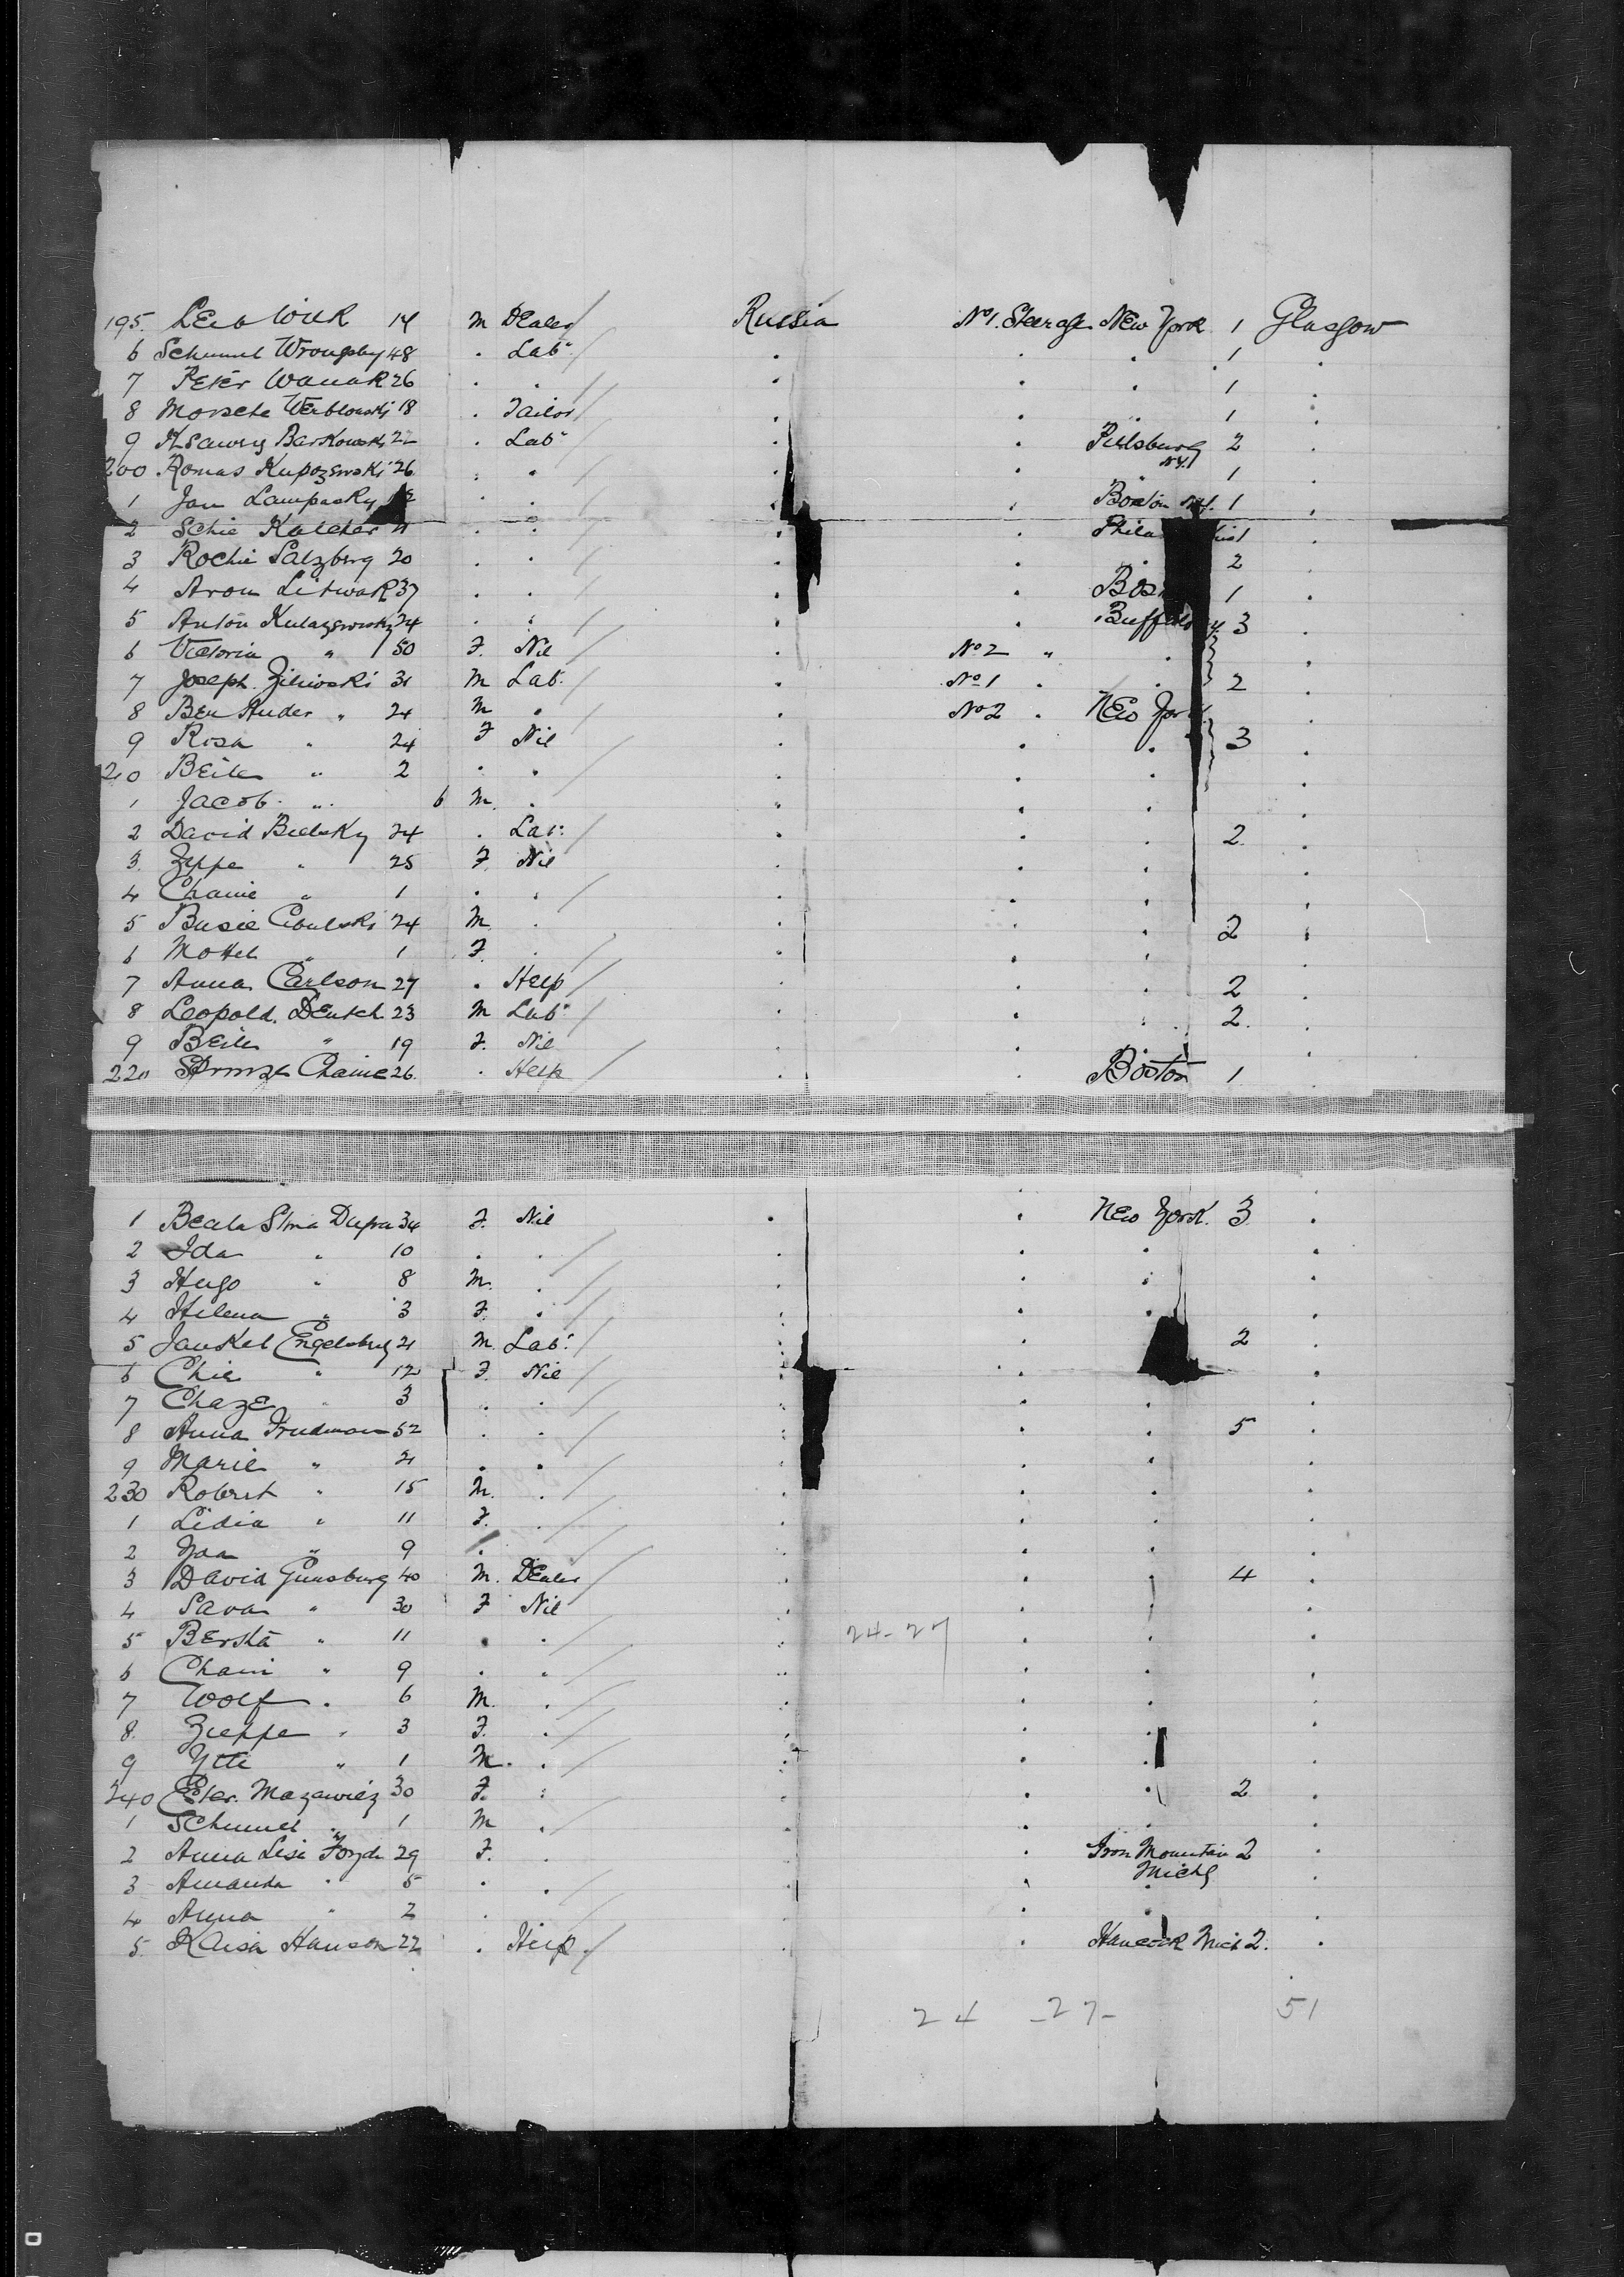 195. Leib Wilk 14 M Dealer Russia No 1. Steerage New York 1 Glasgow
6 Schmuel 48 . Lab. . . . 1 .
7 Peter Wanak 26 . . . . . 1 .
8 Morsche Werblowski 18 . Tailor . . . 1 .
9 Barkowski 22 . Lab. . . 2 .
200 Romas 26 . . . . N.Y. 1 .
1 Jan Lampasky . . . . Boston 1 .
2 Schie Kalcher 21 . . . . 1 .
3 Rochie Salzberg 20 . . . . . 2 .
4 Aron Litwak 37 . . . . 1 .
5 Anton 24 . . . . 3 .
6 Victoria " 50 F. Nil . No 2 " . .
7 Joseph 31 M Lab. . No 1 . . 2 .
8 Ben Huder " 24 M . . No 2 . New .
9 Rosa " 24 F Nil . . . 3 .
210 Beile " 2 . . . . . .
1 Jacob " 6 M. . . . . .
2 David Bielsky 24 . Lab. . . . 2. .
3. Zippe " 25 F. Nil . . . .
4 Chaine " 1 . . . . . .
5 Busie Cibulski 24 M . . . . 2 .
6 Mottel " 1 F. . . . . .
7 Anna Carlson 27 . Help . . . 2 .
8 Leopold Deutch 23 M Lab. . . . 2. .
9 Beile " 19 F. Nil . . . .
220 Chaine 26. . Help . . Boston 1
1 Beata Dupa 34 F. Nil . . New York. 3 .
2 Ida " 10 . . . . . .
3 Hugo " 8 M. . . . . .
4 Hilena " 3 F. . . . . .
5 Jankel Engelsberg 21 M. Lab. . . 2 .
6 Chie " 12 F. Nil . . .
7 Chaze " 3 . . . . .
8 Anna 52 . . . . 5 .
9 Marie " 21 . . . . .
230 Robert " 15 M. . . . .
1 Lidia " 11 F. . . . . .
2 " 9 . . . . .
3 David Gunsburg 40 M. Dealer . . . 4 .
4 Sara " 30 F Nil . . . .
5 Berska " 11 . . . 24-27 . . .
6 Chain " 9 . . . . . .
7 Wolf . 6 M. . . . . .
8. Zieppe " 3 F. . . . . .
9 Ytte " 1 M. . . . . .
240 Ester. Mazewiez 30 F. . . . . 2 .
1 Schmuel . 1 M . . . . .
2 Anna Lisa 29 F. . . Iron Mountain 2 .
Michg
3 Amanda " 5 . . . . . .
4 Anna " 2 . . . . .
5. Kaisa Hanson 22 . Help. . . Hancock Mich 2. .
24 - 27 - 51